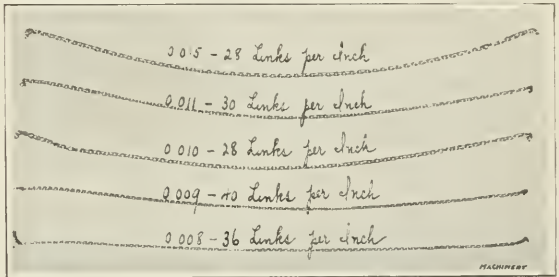 0.015 - 28 Links per Inch
0.011 - 30 Links per Inch
0.010 - 28 Links per Inch
0.009 - 40 Links per Inch
0.008 - 36 Links per Inch
MACHINERY